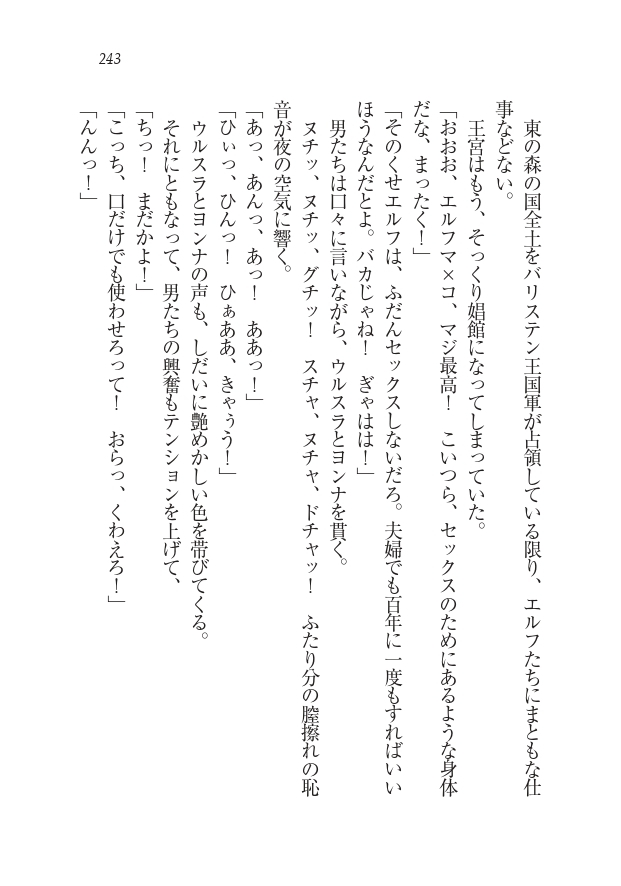 243
東の森の国全土をバリステン王国軍が占領している限り、エルフたちにまともな仕
事などない。
王宮はもう、そっくり娼館になってしまっていた。
「おおお、エルフマ×コ、マジ最高！　こいつら、セックスのためにあるような身体
だな、まったく！」
「そのくせエルフは、ふだんセックスしないだろ。夫婦でも百年に一度もすればいい
ほうなんだとよ。バカじゃね！　ぎゃはは！」
男たちは口々に言いながら、ウルスラとヨンナを貫く。
ヌチッ、ヌチッ、グチッ！　スチャ、ヌチャ、ドチャッ！　ふたり分の膣擦れの恥
音が夜の空気に響く。
「あっ、あんっ、あっ！　ああっ！」
「ひぃっ、ひんっ！　ひぁああ、きゃぅう！」
ウルスラとヨンナの声も、しだいに艶めかしい色を帯びてくる。
それにともなって、男たちの興奮もテンションを上げて、
「ちっ！　まだかよ！」
「こっち、口だけでも使わせろって！　おらっ、くわえろ！」
「んんっ！」